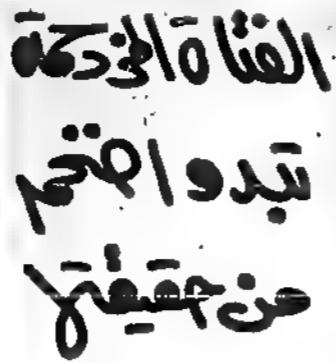 الفتاة المزدحمة
تبدو اضخم
من حقيقتها